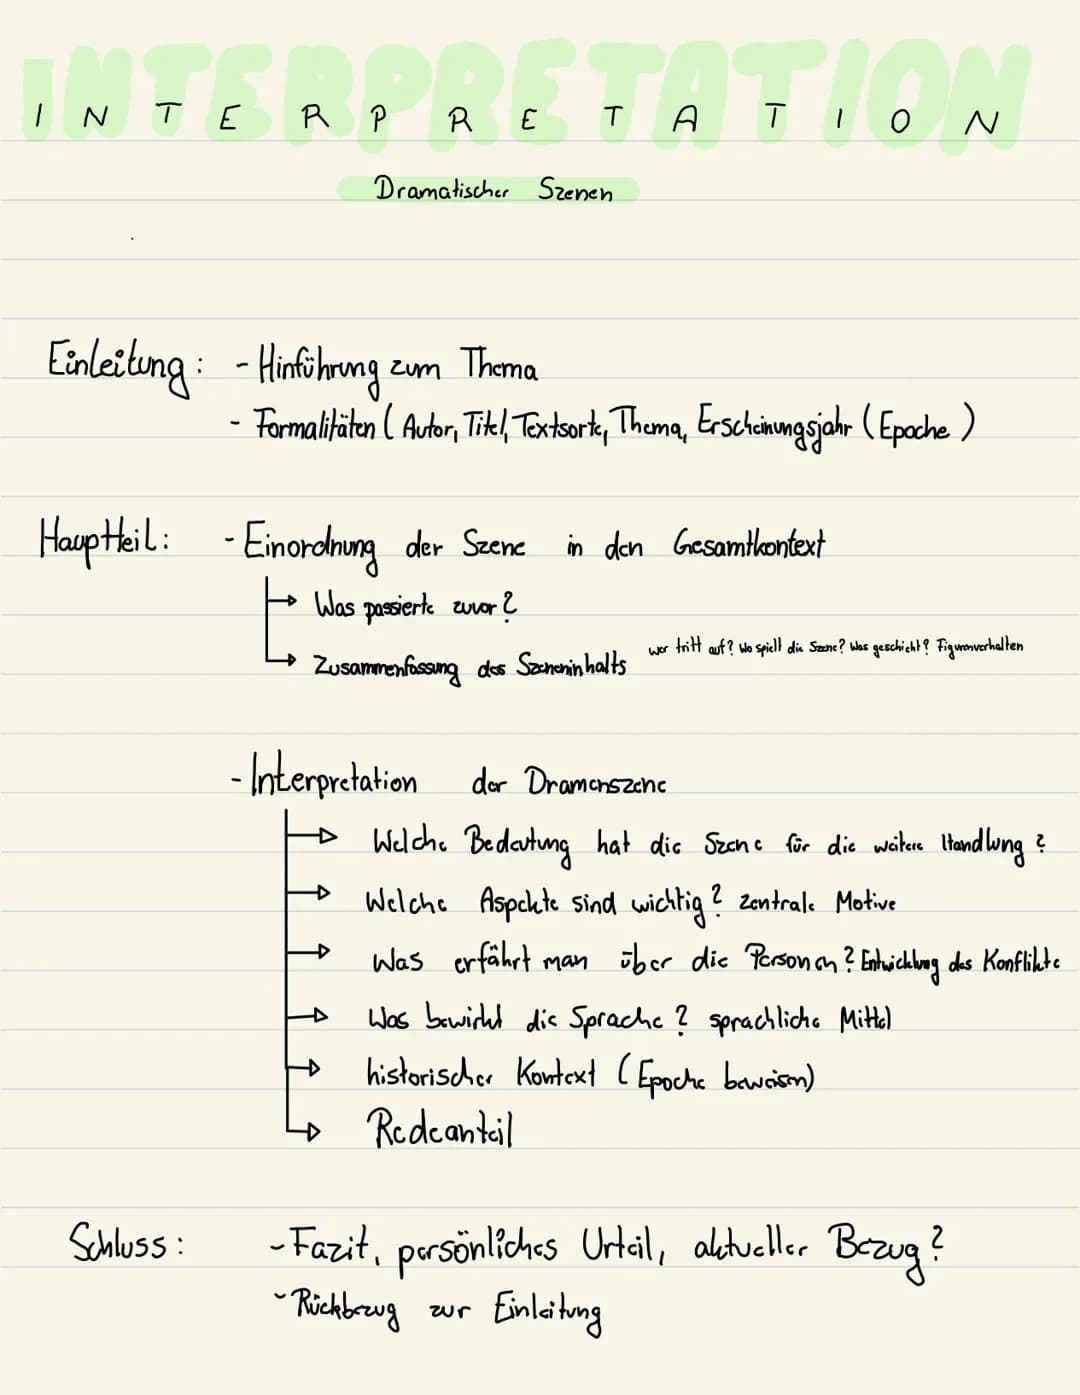 INTERPRETATION
INTERPRETATION
Dramatischer Szenen
Einleitung: - Hinführung zum Thema
- Formalitäten (Autor, Titel, Textsorte, Thema, Erscheinungsjahr (Epoche)
Hauptteil: - Einordnung der Szene in den Gesamtkontext
→ Was passierte zuvor?
→ Zusammenfassung des Szeneninhalts wer tritt auf? Wo spielt die Szene? Was geschieht? Figurenverhalten
- Interpretation der Dramenszene
→ Welche Bedeutung hat die Szene für die weitere Handlung?
→ Welche Aspekte sind wichtig? zentrale Motive
→ Was erfährt man über die Personen? Entwicklung des Konflikte
→ Was bewirkt die Sprache? sprachliche Mittel
→ historischer Kontext (Epoche beweisen)
→ Redeanteil
Schluss: - Fazit, persönliches Urteil, aktueller Bezug?
- Rückbezug zur Einleitung